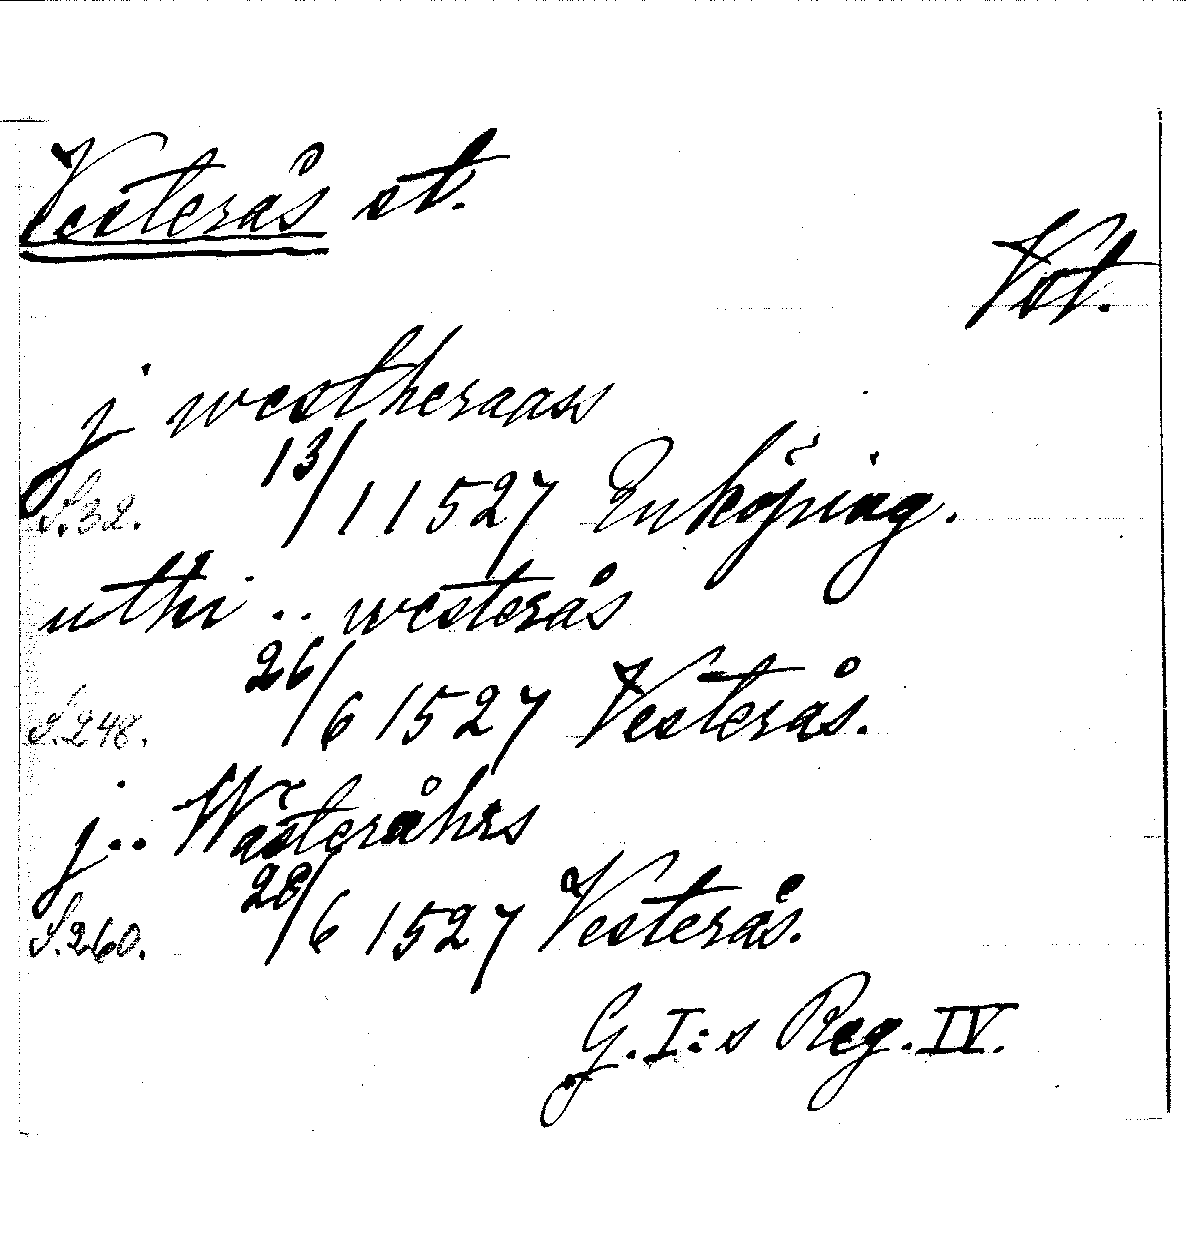 Vesterås st.
Vst.
j westheraass
S. 32. 13/1 1527 Enköping.
uthi .. westerås
S. 248. 26/6 1527 Vesterås.
j .. Wästeråhrs
S. 260. 28/6 1527 Vesterås.
G. I:s Reg. IV.